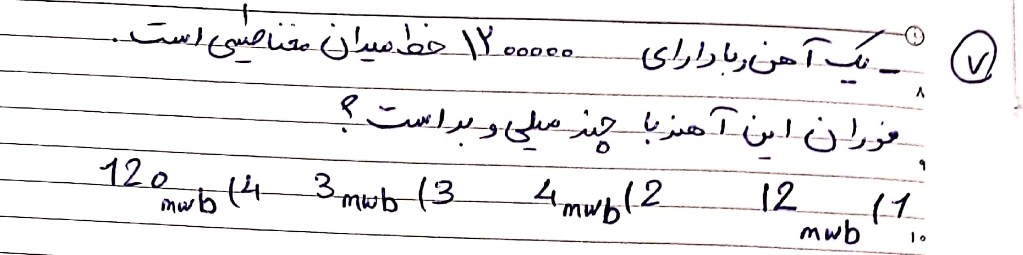 ⑦ - یک آهن ربا دارای ۱۲۰۰۰۰۰ خط میدان مغناطیسی است.
۸
فوران این آهنربا چند میلی وبر است؟
۹
1) 12 mwb 2) 4 mwb 3) 3 mwb 4) 120 mwb
۱۰